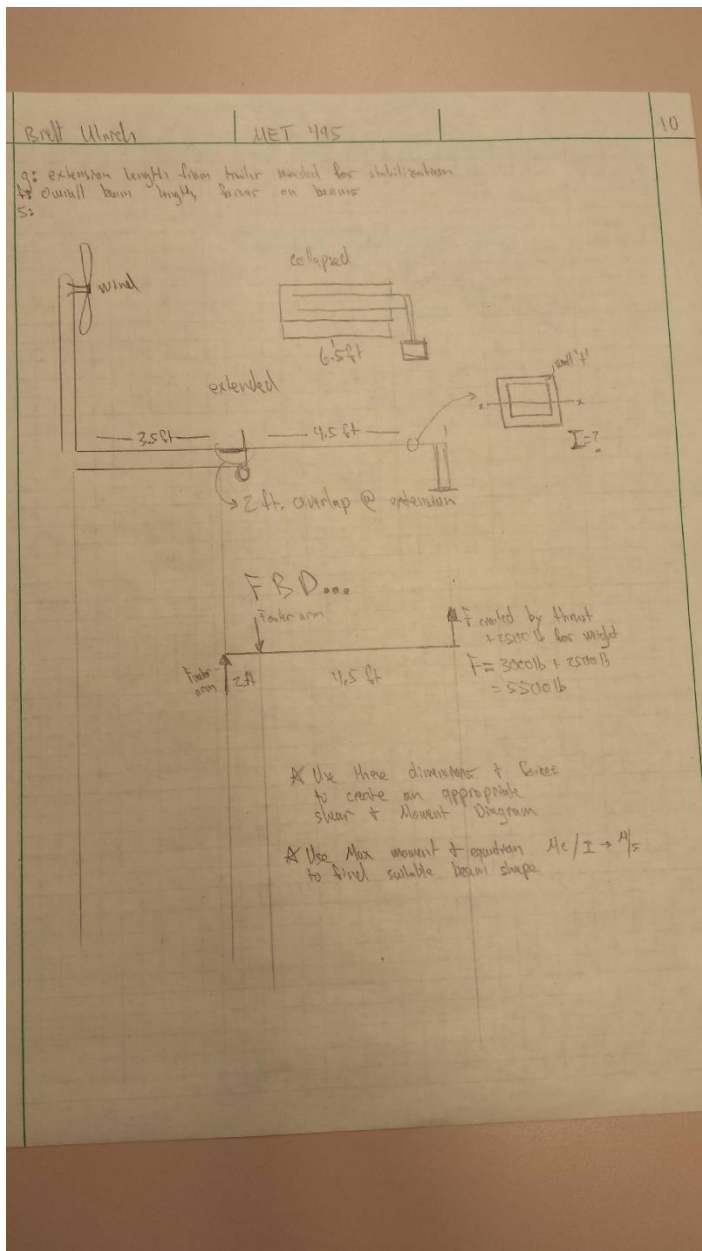 Brett Ulrich MET 495 10
g: extension lengths from trailer needed for stabilization
f: Overall beam lengths, forces on beams
S:
wind
collapsed
6.5ft
extended
wall 't'
3.5ft
4.5 ft
x x
I=?
2 ft. overlap @ extension
FBD...
F outer arm
F created by thrust
+ 2500 lb for weight
F outer arm
2ft
4.5 ft
F = 3000lb + 2500lb
= 5500lb
☆ Use these dimensions + forces
to create an appropriate
shear + Moment Diagram
☆ Use Max moment + equation Mc/I → M/s
to find suitable beam shape